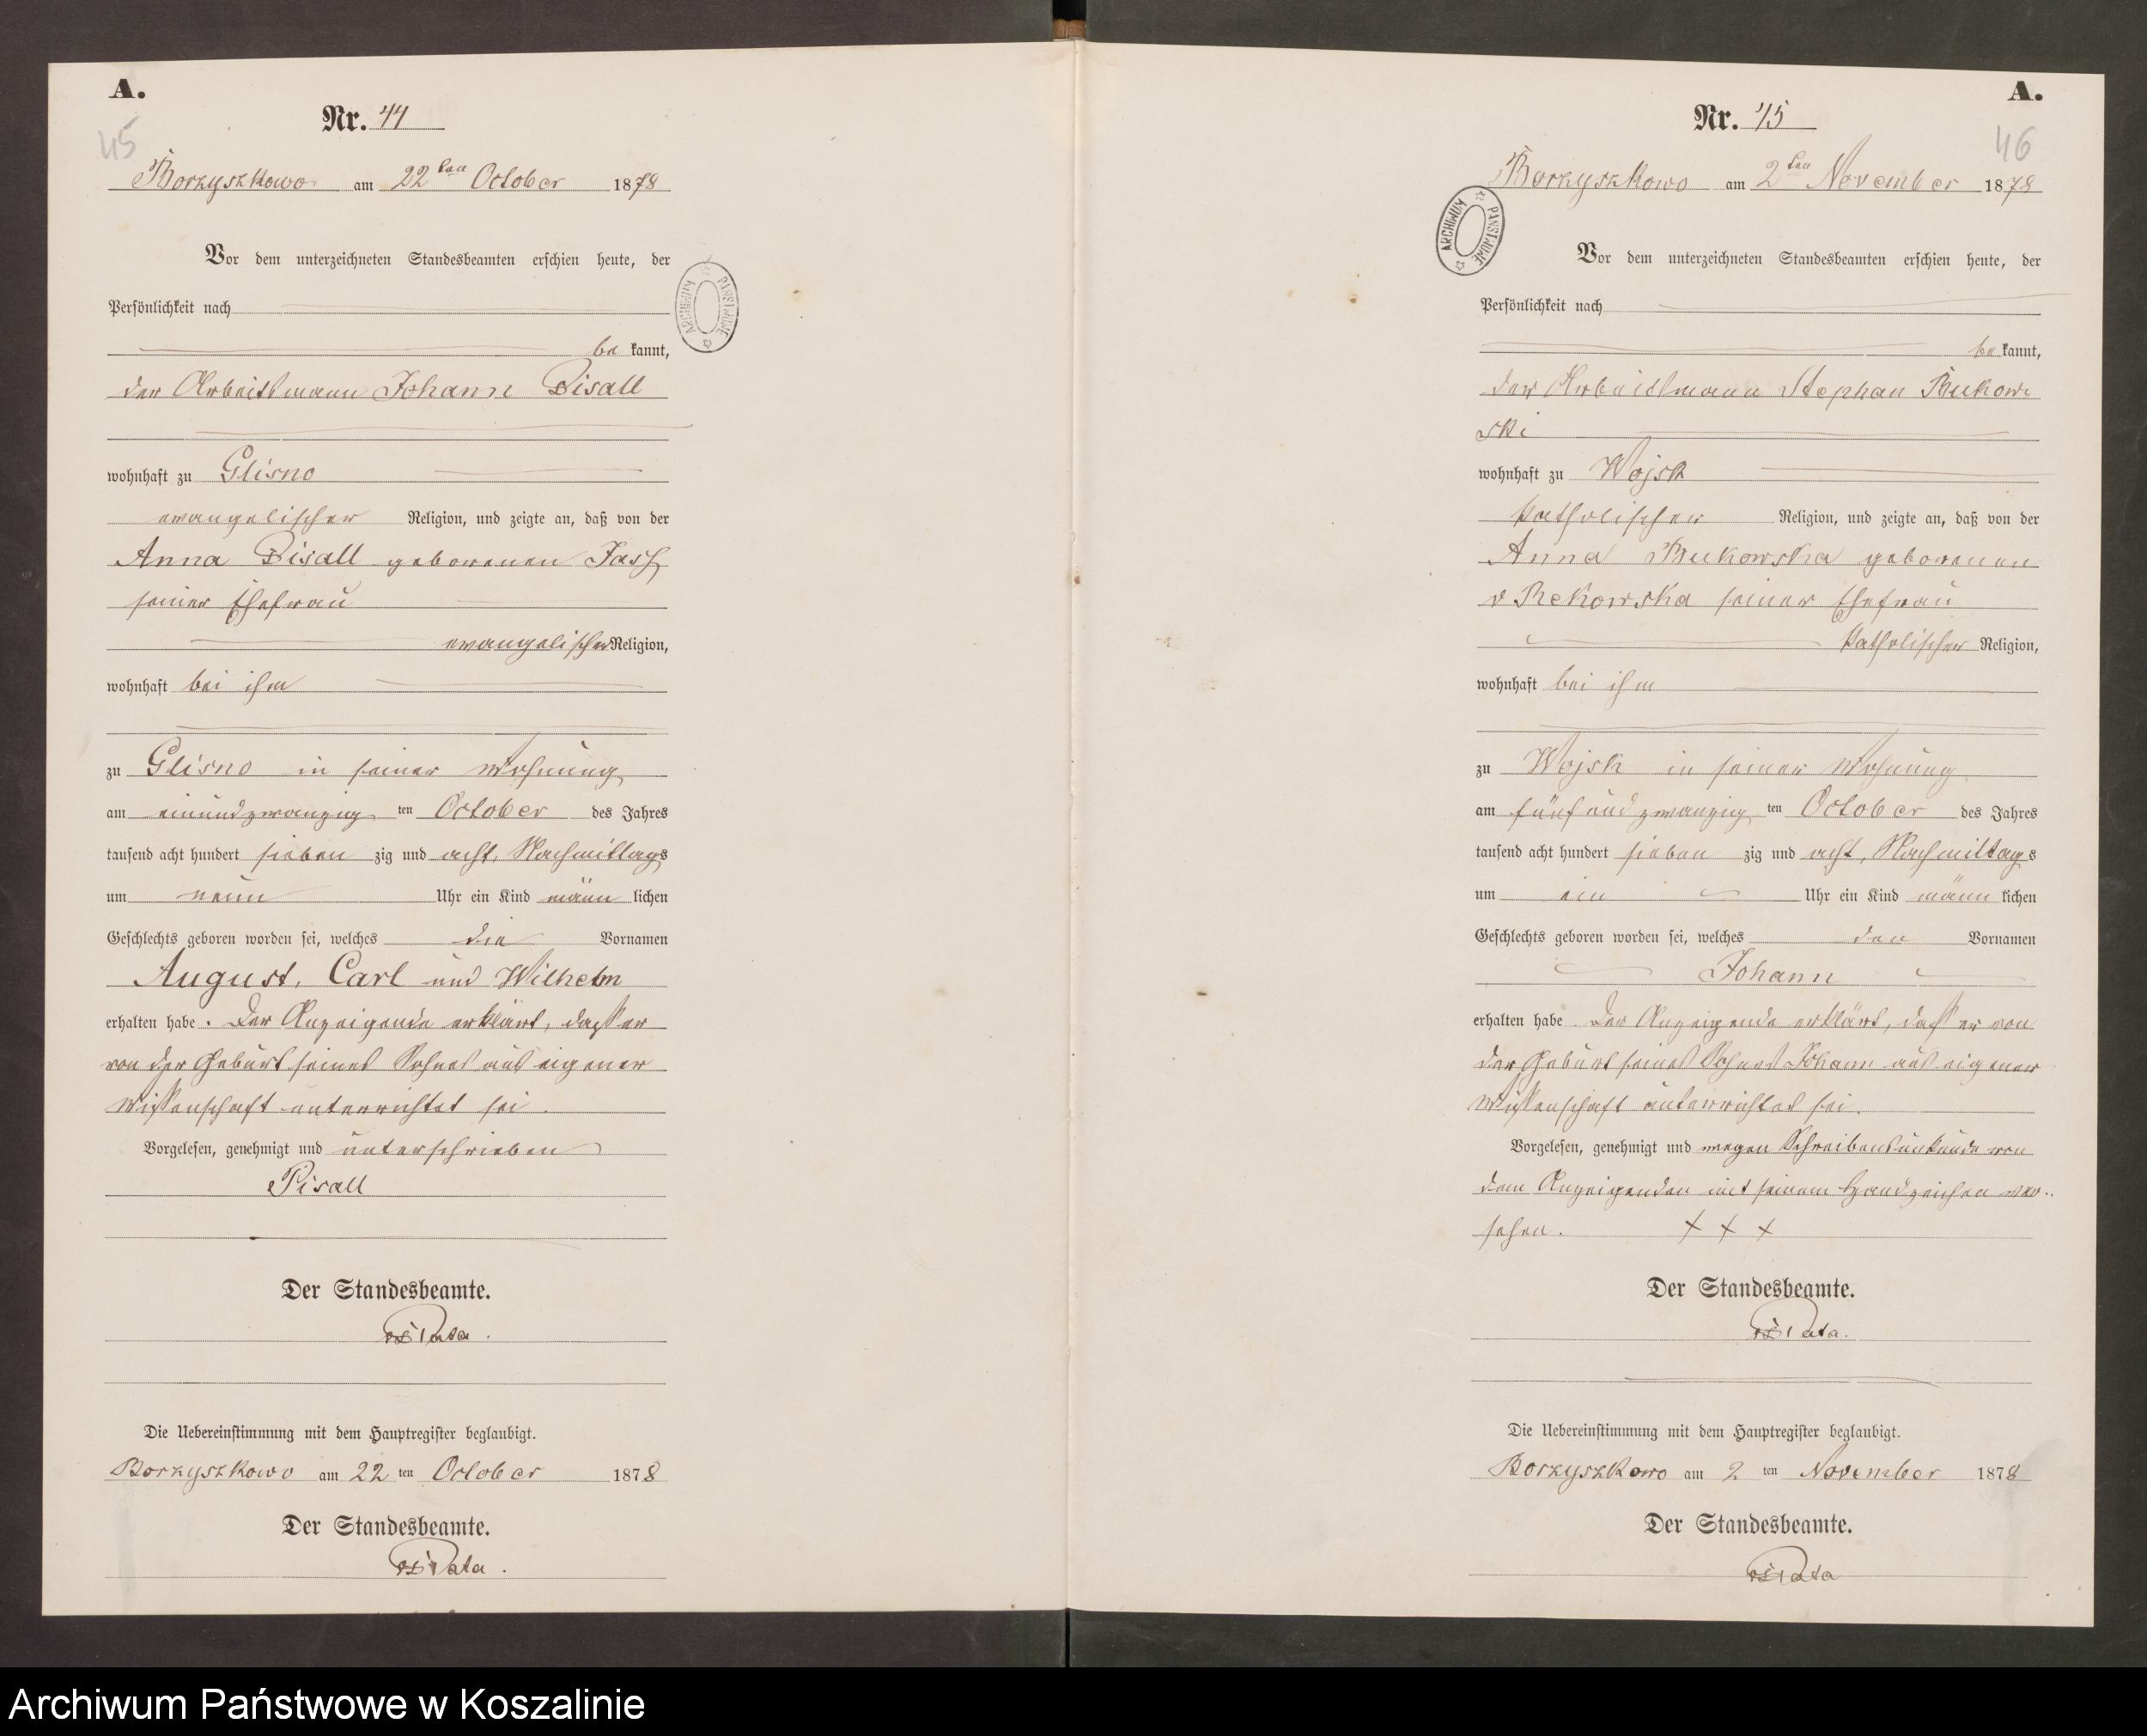 A.
Nr. 44
45
Borzyszkowo am 22ten October 1878
Vor dem unterzeichneten Standesbeamten erschien heute, der
Persönlichkeit nach
be kannt,
der Arbeitsmann Johann Pisall
wohnhaft zu Glisno
evangelischer Religion, und zeigte an, daß von der
Anna Pisall geborenen Jasch
seiner Ehefrau
evangelischer Religion,
wohnhaft bei ihm
zu Glisno in seiner Wohnung
am einundzwanzig ten October des Jahres
tausend acht hundert sieben zig und acht, Nachmittags
um neun Uhr ein Kind männ lichen
Geschlechts geboren worden sei, welches die Vornamen
August, Carl und Wilhelm
erhalten habe. Der Anzeigende erklärt, dass er
von der Geburt seines Sohnes aus eigener
Wissenschaft unterrichtet sei.
Vorgelesen, genehmigt und unterschrieben
Pisall
Der Standesbeamte.
Die Uebereinstimmung mit dem Hauptregister beglaubigt.
Borzyszkowo am 22 ten October 1878
Der Standesbeamte.
ARCHIWUM PAŃSTWOWE
A.
Nr. 45
46
Borzyszkowo am 2ten November 1878
ARCHIWUM PAŃSTWOWE
Vor dem unterzeichneten Standesbeamten erschien heute, der
Persönlichkeit nach
be kannt,
der Arbeitsmann Stephan Bukow
ski
wohnhaft zu Wojsk
katholischer Religion, und zeigte an, daß von der
Anna Bukowska geborenen
v Rekowska seiner Ehefrau
katholischer Religion,
wohnhaft bei ihm
zu Wojsk in seiner Wohnung
am fünfundzwanzig ten October des Jahres
tausend acht hundert sieben zig und acht, Nachmittags
um ein Uhr ein Kind männ lichen
Geschlechts geboren worden sei, welches den Vornamen
Johann
erhalten habe. Der Anzeigende erklärt, dass er von
der Geburt seines Sohnes Johann aus eigener
Wissenschaft unterrichtet sei.
Vorgelesen, genehmigt und wegen Schreibensunkunde von
dem Anzeigenden mit seinem Handzeichen ver-
sehen. + + +
Der Standesbeamte.
Die Uebereinstimmung mit dem Hauptregister beglaubigt.
Borzyszkowo am 2 ten November 1878
Der Standesbeamte.
Archiwum Państwowe w Koszalinie